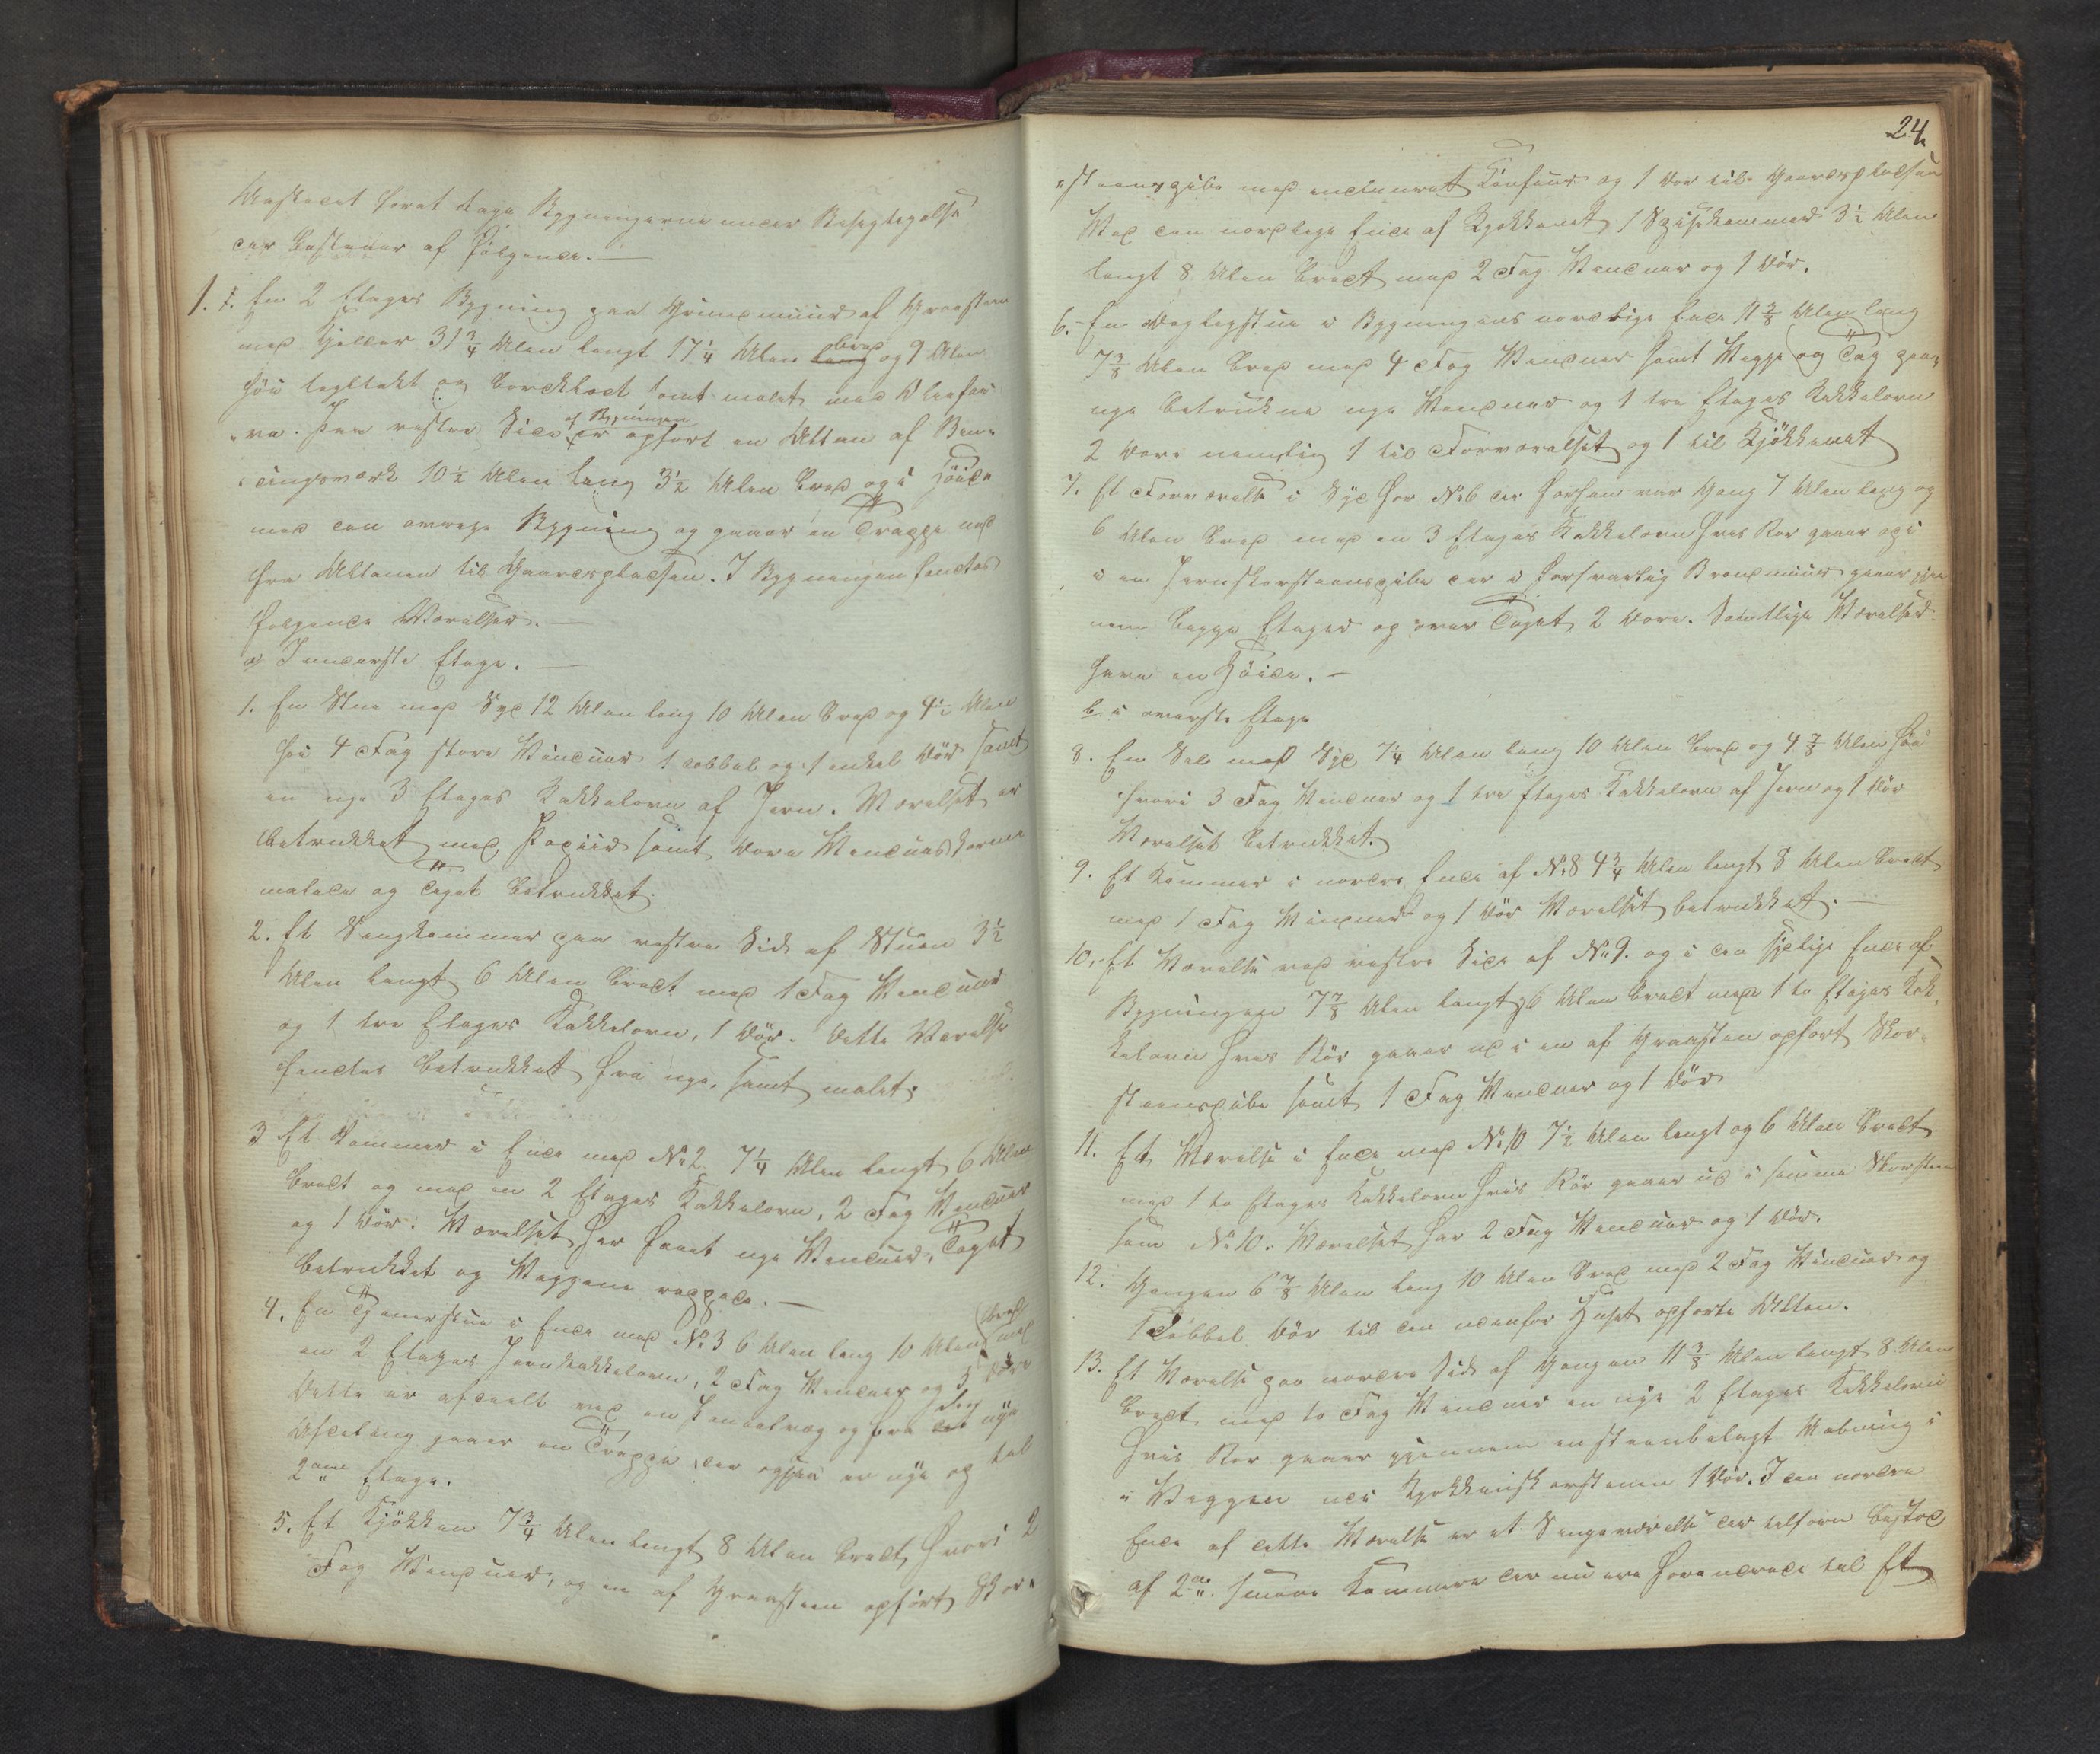 Assistent foret tage Bygningerne under Besigtigelse
der bestaaer af følgende. —
1. 1. En 2 Etages Bygning paa Grundmuur af Graasteen
med Kjelder 31 3/4 Alen langt 17 1/4 Alen lang bred og 9 Alen
høi tegltakt og bordklædt samt malet med Oliefar-
ve. Paa vestre Side af Bygningen er opført en Altan af Bin-
dingsværk 10 1/2 Alen lang 3 1/2 Alen bred og i Høide
med den øvrige Bygning og gaaer en Trappe ned
fra Altanen til Gaardspladsen. I Bygningen findes
følgende Værelser. —
a I underste Etage. —
1. En Stue mod Syd 12 Alen lang 10 Alen bred og 4 1/2 Alen
høi 4 Fag store Vinduer 1 dobbel og 1 enkel Dør samt
en nye 3 Etages Kakkelovn af Jern. Værelset er
betrukket med Papiir samt Døre Vindueskarme
malede og Taget betrukket.
2. Et Sengkammer paa vestre Side af Stuen 3 1/2
Alen langt 6 Alen bredt med 1 Fag Vinduer
og 1 tre Etages Kakkelovn, 1 Dør. Dette Værelse
findes betrukket fra nye, samt malet.
3 Et Kammer i Ende med No 2 7 1/4 Alen langt 6 Alen
bredt og med en 2 Etages Kakkelovn, 2 Fag Vinduer
og 1 Dør. Værelset har faaet nye Vinduer, Taget
betrukket og Væggene rappede. —
4. En Tjenerstue i Ende med No 3 6 Alen lang 10 Alen bred med
en 2 Etages Jernkakkelovn, 2 Fag Vinduer og 3 Døre
Dette er afdeelt ved en Panelvæg og fra den nye
Afdeling gaaer en Trappe, der ogsaa er nye og til
2den Etage.
5. Et Kjøkken 7 3/4 Alen langt 8 Alen bredt, hvori 2
Fag Vinduer, og en af Graasteen opført Skor-
24
steenspibe med indmuret Komfuur og 1 Dør til Gaardspladsen
Ved den nordlige Ende af Kjøkkenet 1 Spisekammer 3 1/2 Alen
langt 8 Alen bredt med 2 Fag Vinduer og 1 Dør.
6. En Dagligstue i Bygningens nordlige Ende 11 3/8 Alen lang
7 3/8 Alen bred med 4 Fag Vinduer samt Vægge og Tag paa
nye betrukne nye Vinduer og 1 tre Etages Kakkelovn
2 Døre nemlig 1 til Forværelset og 1 til Kjøkkenet
7. Et Forværelse i Syd for No 6 der forhen var Gang 7 Alen lang og
6 Alen bred med en 3 Etages Kakkelovn hvis Rør gaaer op i
i en Jernskorsteenspibe der i forsvarlig Brandmuur gaaer gjen
nem begge Etager og over Taget 2 Døre. Samtlige Værelser
have en Høide. —
b. i øverste Etage
8. En Sal mod Syd 7 1/4 Alen lang 10 Alen bred og 4 3/8 Alen høi
hvori 3 Fag Vinduer og 1 tre Etages Kakkelovn af Jern og 1 Dør
Værelset betrukket.
9. Et Kammer i nordre Ende af No 8 4 3/4 Alen langt 8 Alen bredt
med 1 Fag Vinduer og 1 Dør Værelset betrukket. —
10. Et Værelse ved vestre Side af No 9. og i den sydlige Ende af
Bygningen 7 3/8 Alen langt 6 Alen bredt med 1 to Etages Kak-
kelovn hvis Rør gaaer ud i en af Graasteen opført Skor-
steenspibe samt 1 Fag Vinduer og 1 Dør
11. Et Værelse i Ende med No 10 7 1/2 Alen langt og 6 Alen bredt
med 1 to Etages Kakkelovn hvis Rør gaaer ud i samme Skorsteen
som No 10. Værelset har 2 Fag Vinduer og 1 Dør.
12. Gangen 6 3/8 Alen lang 10 Alen bred med 2 Fag Vinduer og
1 Dobbel Dør til den udenfor Huset opførte Altan.
13. Et Værelse paa nordre Side af Gangen 11 3/8 Alen langt 8 Alen
bredt med to Fag Vinduer en nye 2 Etages Kakkelovn
hvis Rør gaaer gjennem en steenbelagt Aabning i
i Væggen ud i Kjøkkenskorstenen 1 Dør. I den nordre
Ende af dette Værelse er et Sengeværelse der tilforn bestod
af 2de smaae Kammere der nu ere forandrede til Et